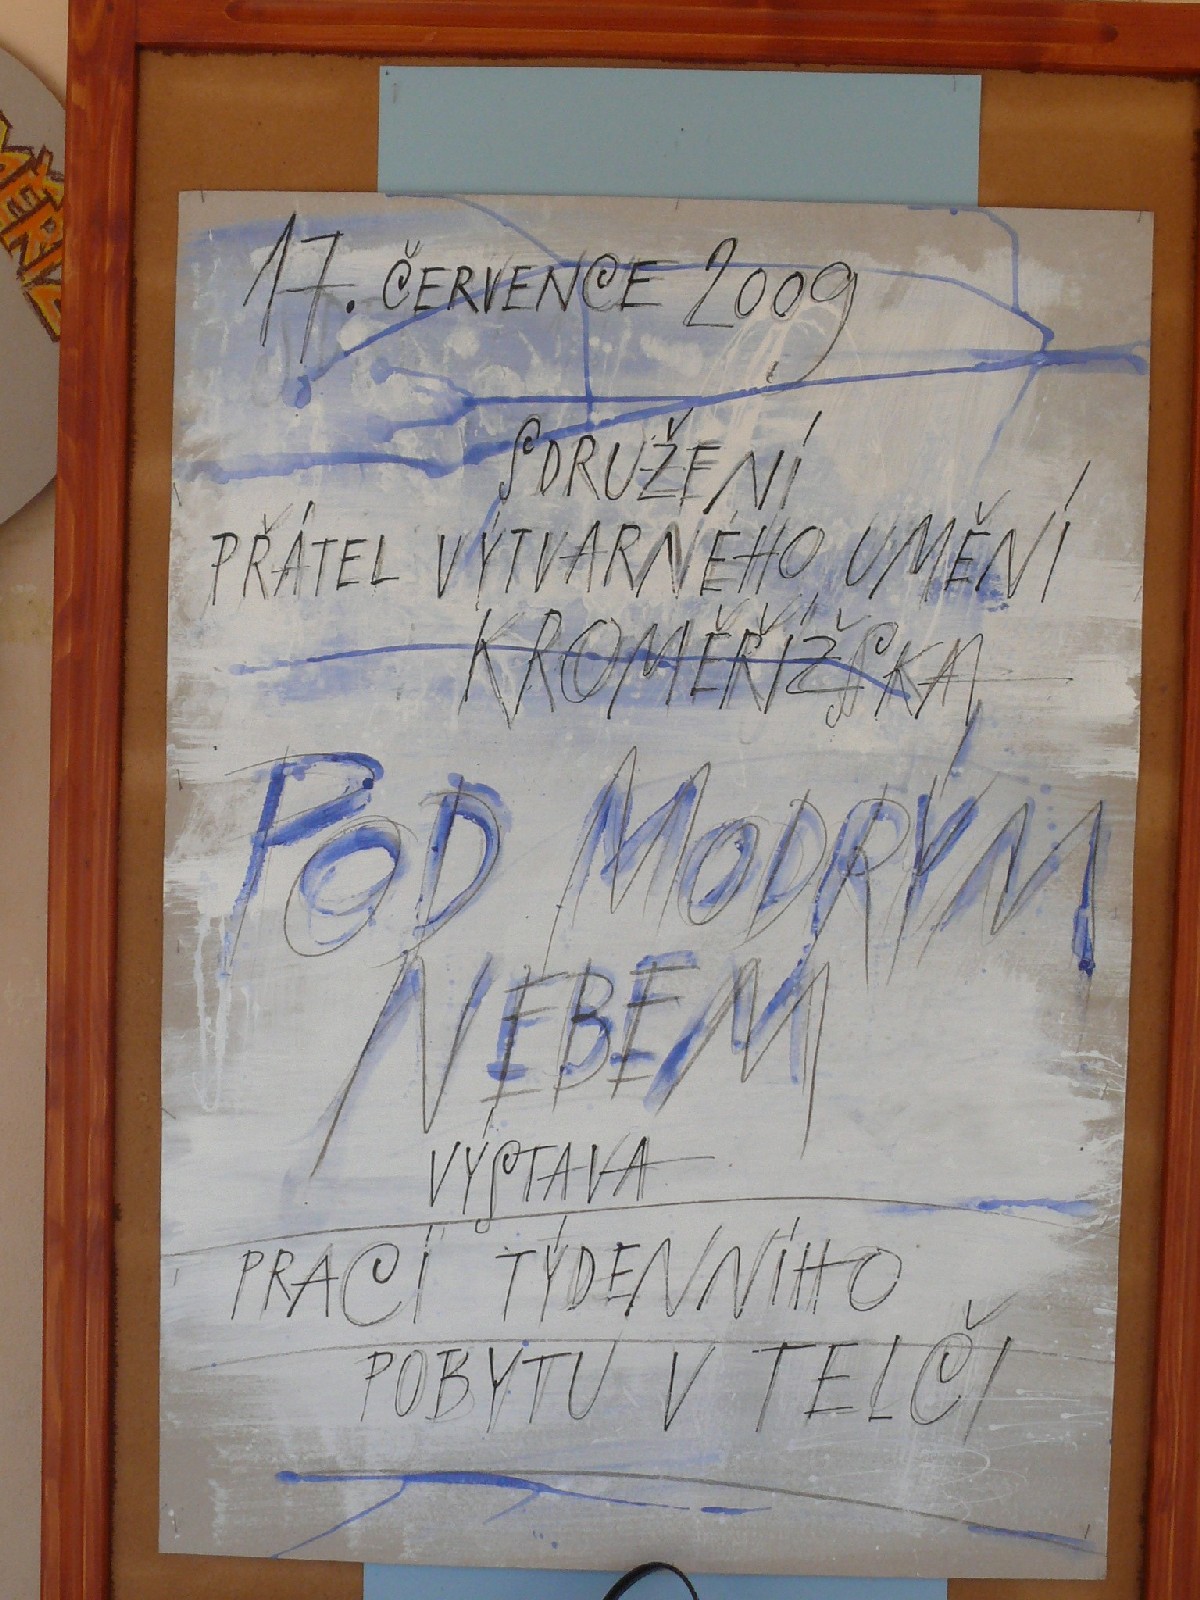 17. ČERVENCE 2009
SDRUŽENÍ
PŘÁTEL VÝTVARNÉHO UMĚNÍ
KROMĚŘÍŽSKA
POD MODRÝM
NEBEM
VÝSTAVA
PRACÍ TÝDENNÍHO
POBYTU V TELČI